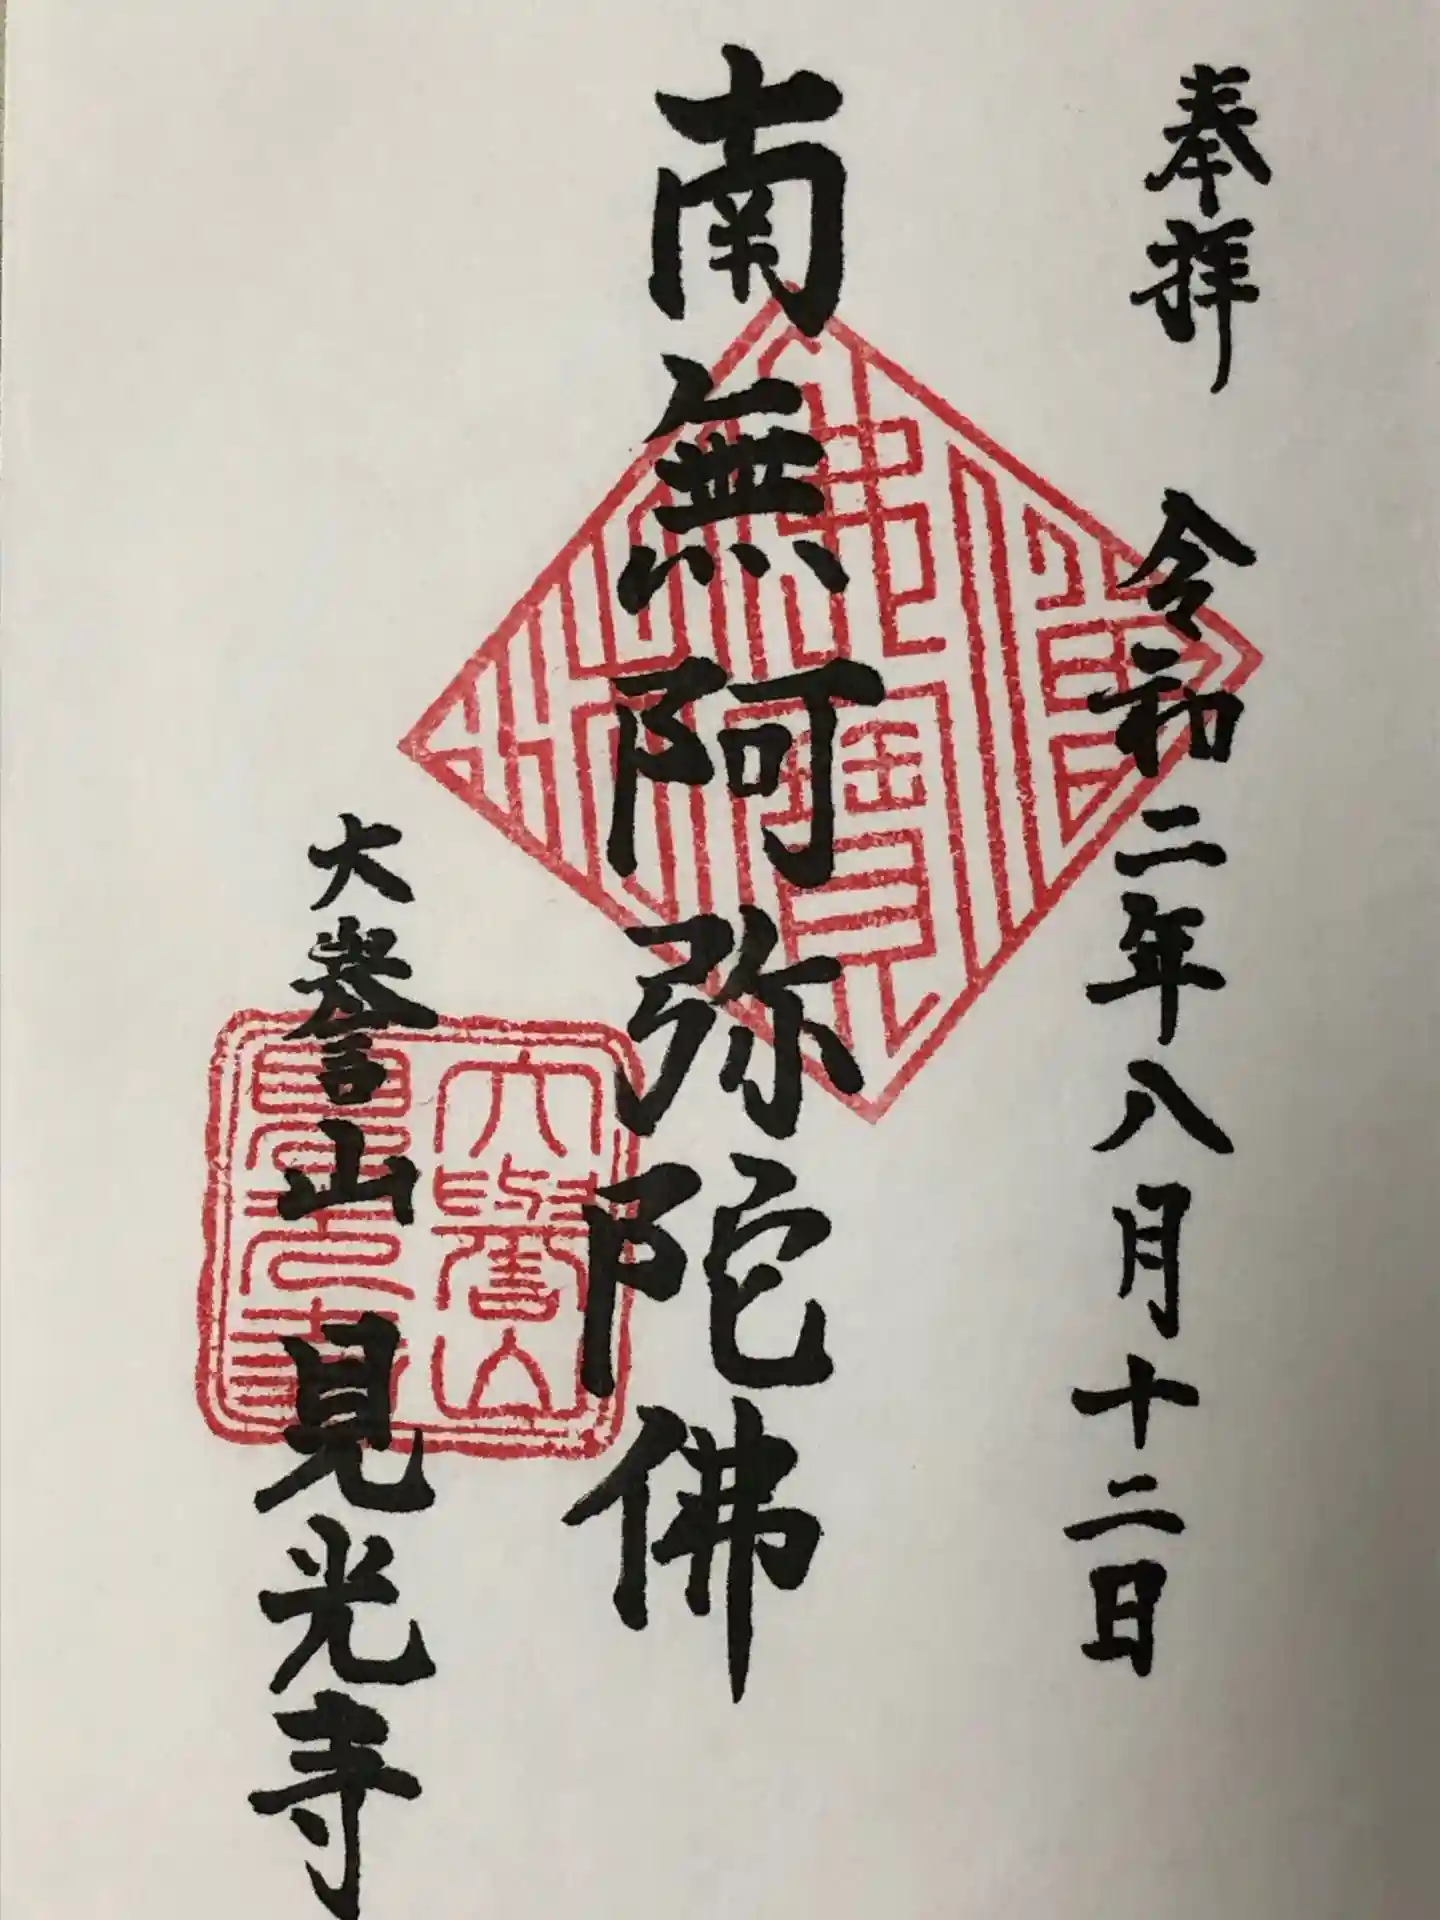 奉拝 令和二年八月十二日
南無阿弥陀佛
大誉山見光寺
佛法僧寶
大譽山見光寺